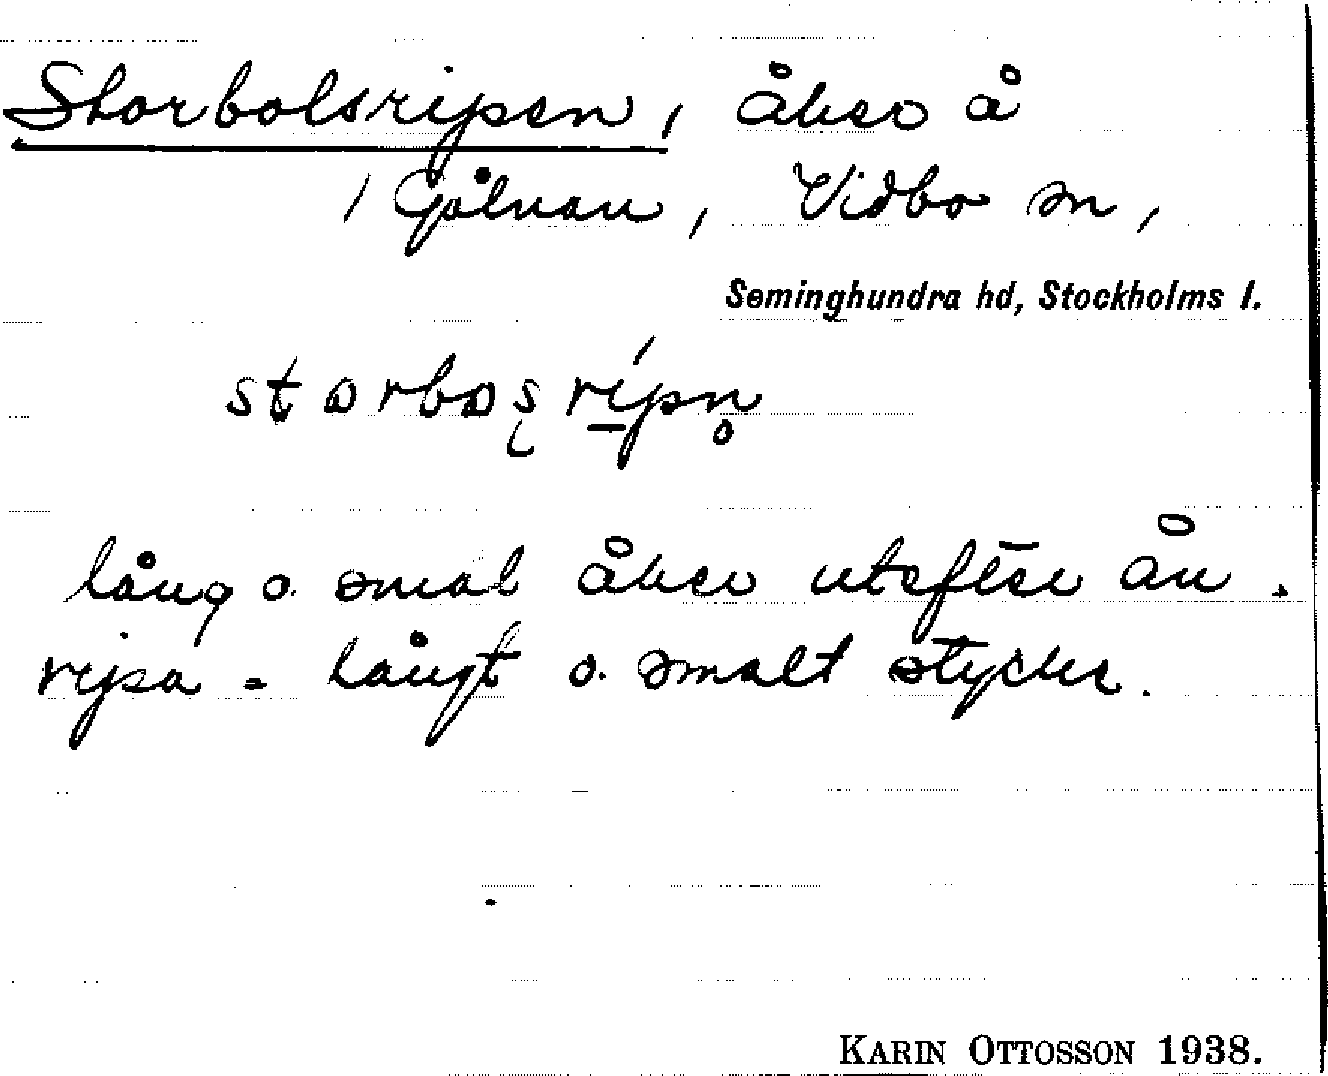 Storbolsripen, åker å
/ Gålnan, Vidbo sn,
Seminghundra hd, Stockholms l.
storbosrípn̥
lång o. smal åker utefter ån.
ripa = långt o. smalt stycke.
KARIN OTTOSSON 1938.